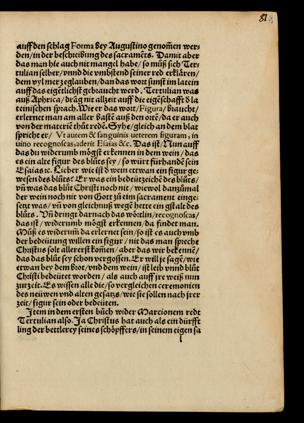 81
auff den schlag Forma bey Augustino genomen wer⸗
den / in der beschreibung des sacraments. Damit aber
das man hie auch nit mangel habe / so müß sich Ter⸗
tulian selber / vnnd die vmbstend seiner red erklären /
dem vyl mer zeglauben / dan das wort sunst im latein
auff das eigetlichst gebraucht werd. Tertulian was
auß Aphrica / drüg nit allzeit auff die eigeschafft d̄
lateinischen sprach. Wie er das wort / Figura / braucht /
erlernet man am aller baste auß den orte / da er auch
von der materie thut rede. Syhe / gleich an dem blat
spricht er / Vt autem & sanguinis ueterem figuram, in
uino recognoscas, aderit Elaias &c. Das ist / Nun auff
das du widerumb mögst erkennen in dem wein / das
es ein alte figur des blůts sey / so würt fürhande sein
Esaias ꝛc. Lieber wie ist d̄ wein ettwan ein figur ge⸗
wesen des blůts? Er was ein bedeütʒeichē des blůts /
vn̄ was das blůt Christi noch nit / wiewol danʒůmal
der wein noch nie von Gott ʒů eim sacrament einge⸗
setʒt was / vn̄ von gleichnuß wegē hette ein gstalt des
blůts. Vn̄ dringt darnach das wörtlin / recognoscas /
das ist / widerumb mögst erkennen / da findet man.
Můß es widerum da erlernet sein / so ist es auch vmb
der bedeütung willen ein figur / nit das man spreche
Christus solt allererst komen / aber das wir bekennē /
das das blůt sey schon vergossen. Er will ye sagē / wie
etwan bey dem brot / vnd dem wein / ist leib vnnd blůt
Christi bedeütet worden / als auch auff ire weiß nun
ʒurʒeit. Es wissen alle die / so vergleichen ceremonien
des neüwen vnd alten gesatʒs / wie sie sollen nach irer
ʒeit / figur sein oder bedeüten.
Item in dem ersten bůch wider Marcionem redt
Tertulian also. Ja Christus hat auch als ein dürfft
ling der bettlerey seines schöpffers / in seinem eigen sa